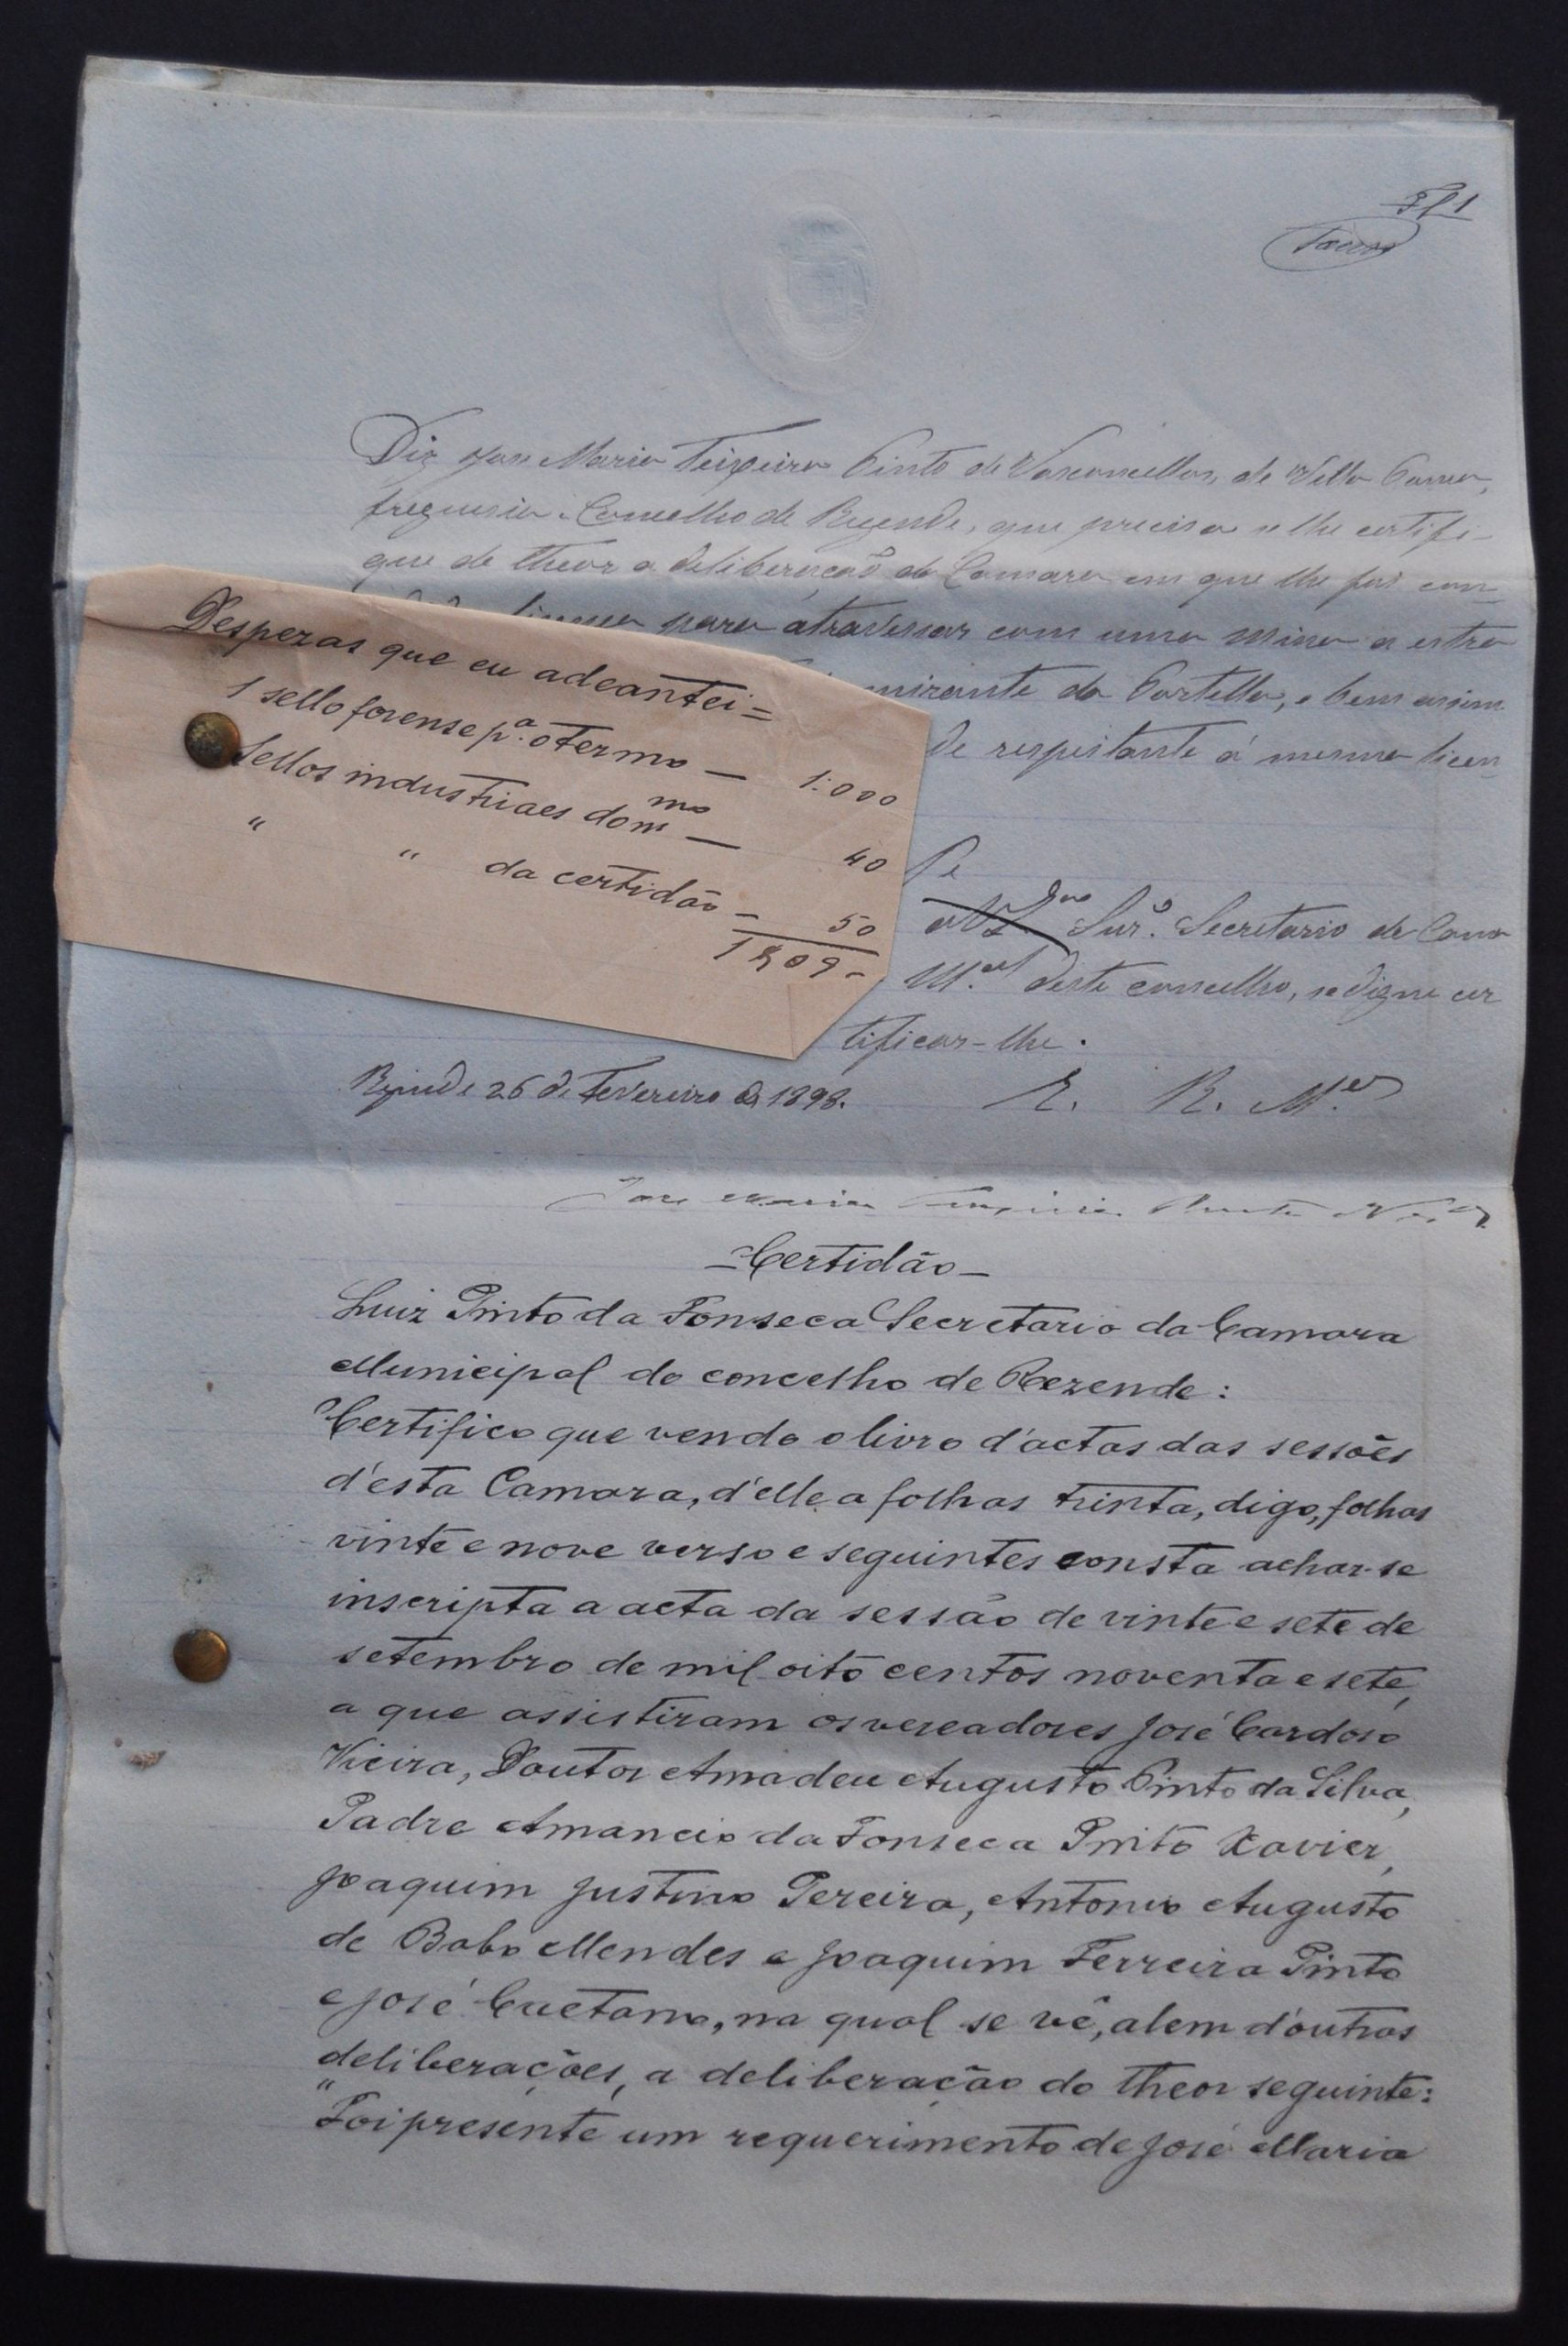 Fl 1
Diz José Maria Teixeira Pinto de Vasconcellos, de Villa Pouca,
freguesia e Concelho de Rezende, que precisa se lhe certifi-
que de theor a deliberação da Camara em que lhe foi con-
licença para atravessar com uma mina a estra
mirante da Portella, e bem assim
de respeitante á mesma licen
Despezas que eu adeantei =
1 sello forense p.ª o termo — 1:000
Sellos industriaes do m.mo — 40
" " da certidão — 50
1$09-
Pe
Snr. Secretario da Cama
M.al deste concelho, se digne cer
tificar-lhe.
Rezende 26 de Fevereiro de 1898.
E. R. M.ce
José Maria Teixeira Pinto
— Certidão —
Luiz Pinto da Fonseca Secretario da Camara
Municipal do concelho de Rezende:
Certifico que vendo o livro d'actas das sessões
d'esta Camara, d'elle a folhas trinta, digo, folhas
vinte e nove verso e seguintes consta achar-se
inscripta a acta da sessão de vinte e sete de
setembro de mil oito centos noventa e sete,
a que assistiram os vereadores José Cardoso
Vieira, Doutor Amadeu Augusto Pinto da Silva,
Padre Amancio da Fonseca Pinto Xavier,
Joaquim Justino Pereira, Antonio Augusto
de Babo Mendes e Joaquim Ferreira Pinto
e José Caetano, na qual se vê, alem d'outras
deliberações, a deliberação do theor seguinte:
"Foi presente um requerimento de José Maria